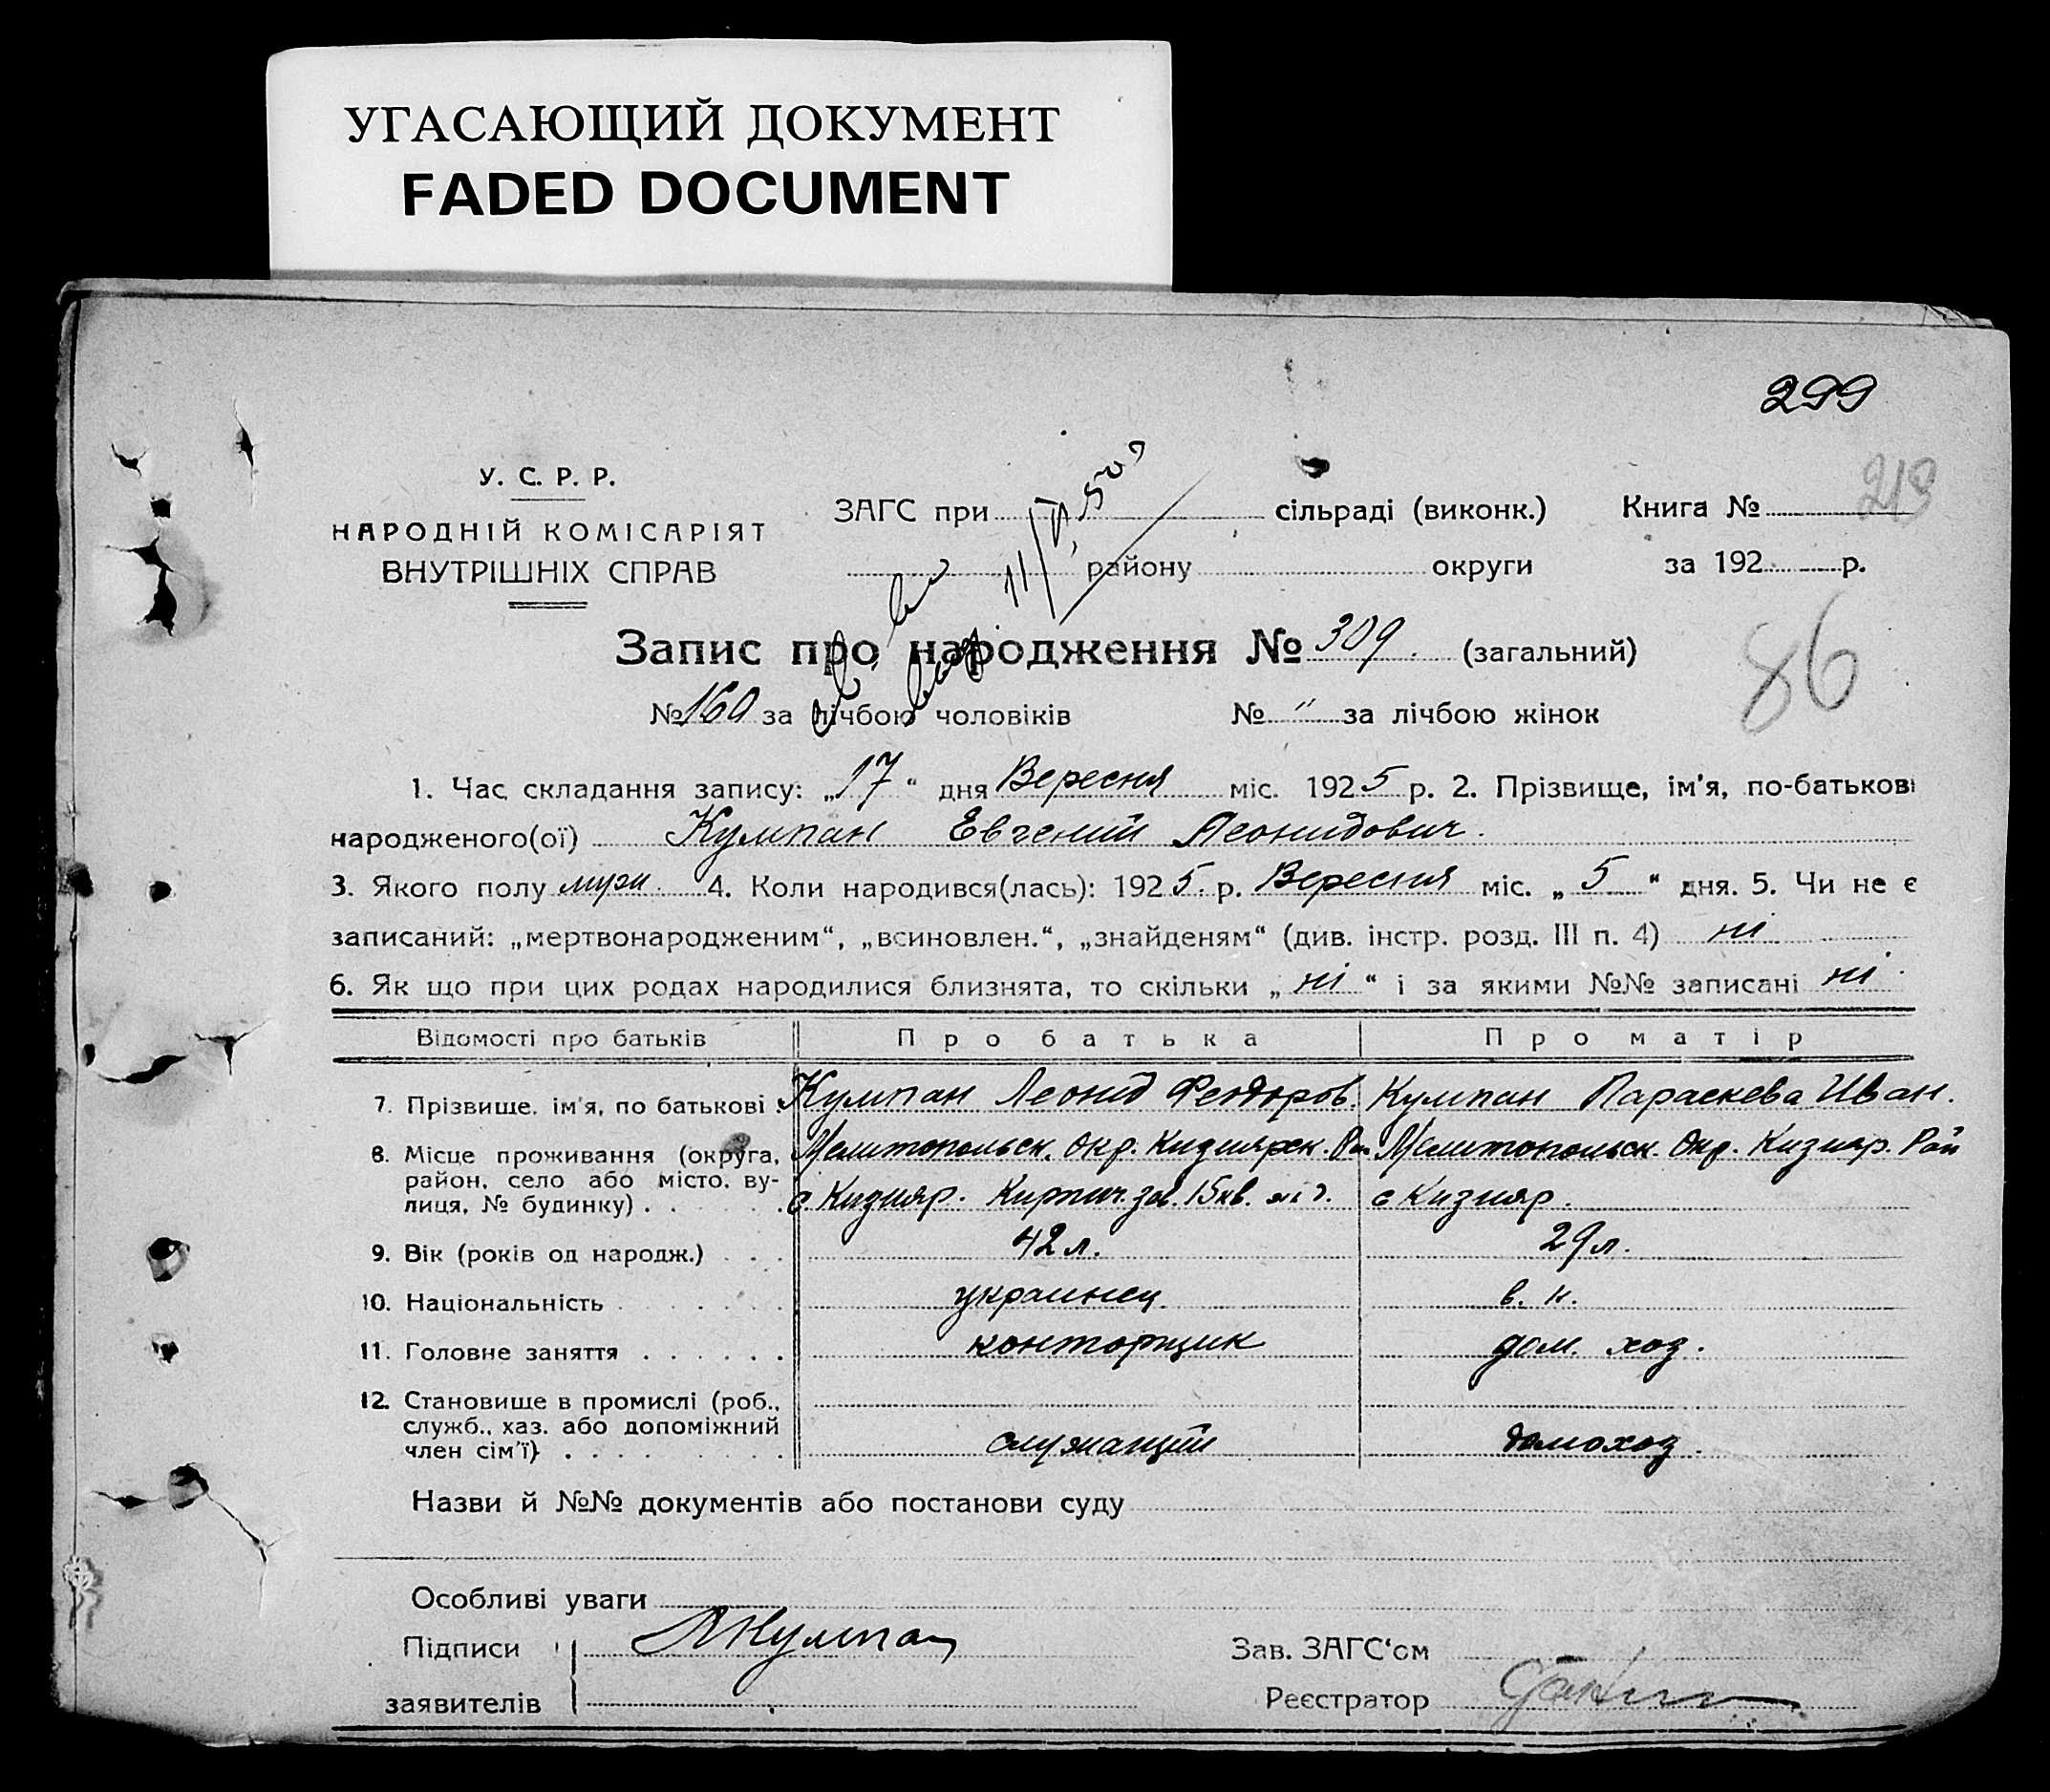 УГАСАЮЩИЙ ДОКУМЕНТ
FADED DOCUMENT
299
У. С. Р. Р.
НАРОДНІЙ КОМІСАРІЯТ
ВНУТРІШНІХ СПРАВ
ЗАГС при сільраді (виконк.)
району округи
Книга № 213
за 192 р.
86
Запис про народження № 309. (загальний)
№ 160 за лічбою чоловіків № " за лічбою жінок
1. Час складання запису: „17“ дня Вересня міс. 1925 р. 2. Прізвище, ім'я, по-батькові
народженого(ої) Кумпан Евгений Леонидович.
3. Якого полу муж. 4. Коли народився(лась): 1925. р. Вересня міс. „5“ дня. 5. Чи не є
записаний: „мертвонародженим“, „всиновлен.“, „знайденям“ (див. інстр. розд. III п. 4) ні
6. Як що при цих родах народилися близнята, то скільки „ні“ і за якими №№ записані ні.
Відомості про батьків Про батька Про матір
7. Прізвище, ім'я, по батькові Кумпан Леонид Феодоров. Кумпан Параскева Иван.
8. Місце проживання (округа, Мелитопольск. Окр. Кизиярск. Рай. Мелитопольск. Окр. Кизияр. Рай
район, село або місто, ву-
лиця, № будинку) с. Кизияр. Кирпич. зав. 15 кв. с Кизияр.
9. Вік (років од народж.) 42 л. 29 л.
10. Національність украинец в. н.
11. Головне заняття конторщик дом. хоз.
12. Становище в промислі (роб.,
служб., хаз. або допоміжний
член сім'ї) служащий домохоз.
Назви й №№ документів або постанови суду
Особливі уваги
Підписи ЛКумпан Зав. ЗАГС‘ом
заявителів Реєстратор